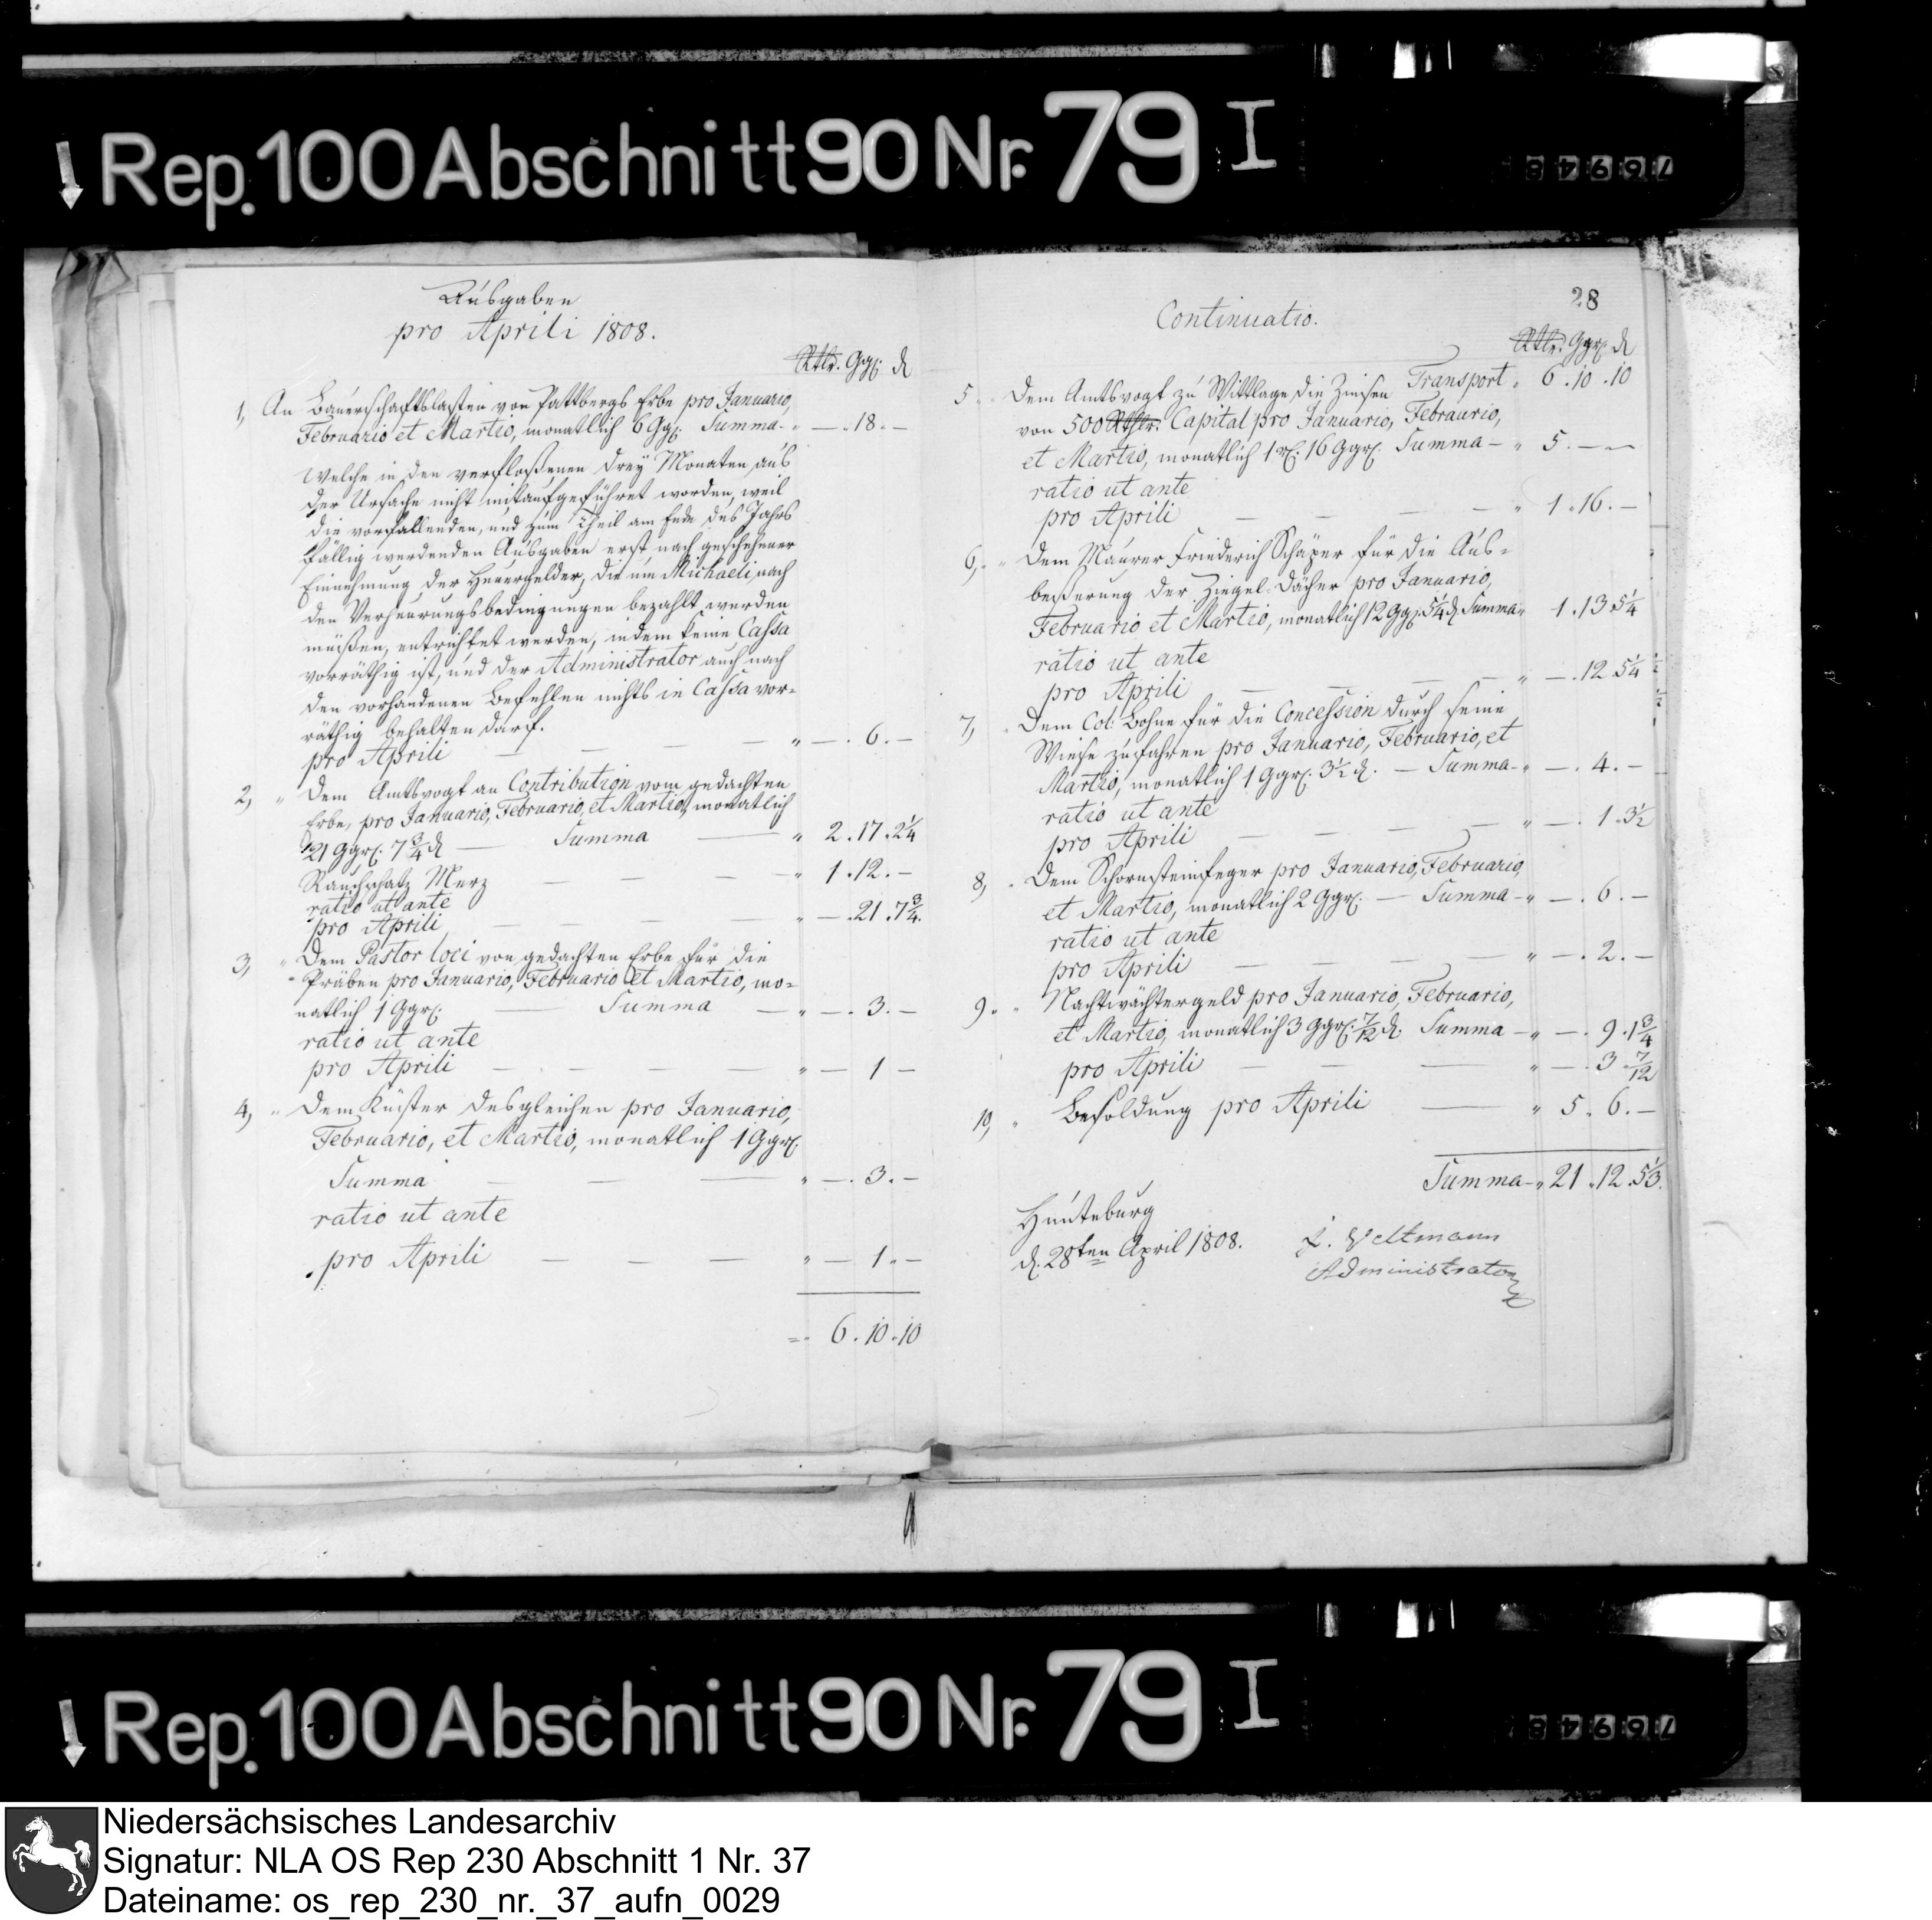 Rep. 100 Abschnitt 90 Nr. 79 I
76948
Ausgaben
pro Aprili 1808.
Rthlr. Ggr. d
1, An Bauerschaftslasten von Pattbergs Erbe pro Januario,
Februario et Martio, monatlich 6 Ggr. Summa - " — . 18 . —
Welche in den verfloßenen drey Monaten aus
der Ursache nicht mitaufgeführet worden, weil
die vorfallenden, und zum Theil am Ende des Jahrs
fällig werdenden Ausgaben erst nach geschehener
Einnehmung der Heuergelder, die um Michaeli nach
den Verheurungsbedingungen bezahlt werden
müßen, entrichtet werden, indem keine Cassa
vorräthig ist, und der Administrator auch nach
den vorhandenen Befehlen nichts in Cassa vor=
räthig behalten darf.
pro Aprili — — — — " — . 6 . —
2, " Dem Amtsvogt an Contribution vom gedachten
Erbe, pro Januario, Februario, et Martio, monatlich
21 Ggr. 7 3/4 d — Summa — " 2 . 17 . 2 1/4
Rauchschatz Merz — — — — " 1 . 12 . —
ratio ut ante
pro Aprili — — — " — . 21 . 7 3/4.
3, " Dem Pastor loci von gedachten Erbe für die
Präben pro Januario, Februario et Martio, mo=
natlich 1 Ggr. — Summa — " — . 3 . —
ratio ut ante
pro Aprili — — — — " — 1 —
4, " Dem Küster desgleichen pro Januario,
Februario, et Martio, monatlich 1 Ggr.
Summa — — — " — . 3 . —
ratio ut ante
pro Aprili — — — " — 1 . —
= . 6 . 10 . 10
28
Continuatio.
Rthlr. Ggr. d
Transport " 6 . 10 . 10
5 " Dem Amtsvogt zu Wittlage die Zinsen
von 500 Rthlr. Capital pro Januario, Febraurio,
et Martio, monatlich 1 r. 16 Ggr. Summa — " 5 . — —
ratio ut ante
pro Aprili — — — — " 1 . 16 . —
6, " Dem Maurer Friederich Schäper für die Aus=
beßerung der Ziegel-Dächer pro Januario,
Februario et Martio, monatlich 12 Ggr. 5 1/4 d. Summa " 1 . 13 5 1/4
ratio ut ante
pro Aprili — — — — " — . 12 5 1/4
7, " Dem Col: Bohne für die Concession durch seine
Wiese zu fahren pro Januario, Februario, et
Martio, monatlich 1 Ggr. 3 1/2 d. — Summa - " — . 4 . —
ratio ut ante
pro Aprili — — — — " — . 1 . 3 1/2
8, " Dem Schornsteinfeger pro Januario, Februario,
et Martio, monatlich 2 Ggr. — Summa - " — . 6 . —
ratio ut ante
pro Aprili — — — — " — . 2 . —
9. " Nachtwächtergeld pro Januario, Februario,
et Martio, monatlich 3 Ggr. 7/12 d. Summa - " — . 9 . 1 3/4
pro Aprili — — — " — . 3 . 7/12
10, " Besoldung pro Aprili — " 5 . 6 . —
Summa - " 21 . 12 . 5 1/3.
Hunteburg
d. 28ten April 1808.
Veltmann
Administrator
Rep. 100 Abschnitt 90 Nr. 79 I
76948
Niedersächsisches Landesarchiv
Signatur: NLA OS Rep 230 Abschnitt 1 Nr. 37
Dateiname: os_rep_230_nr._37_aufn_0029